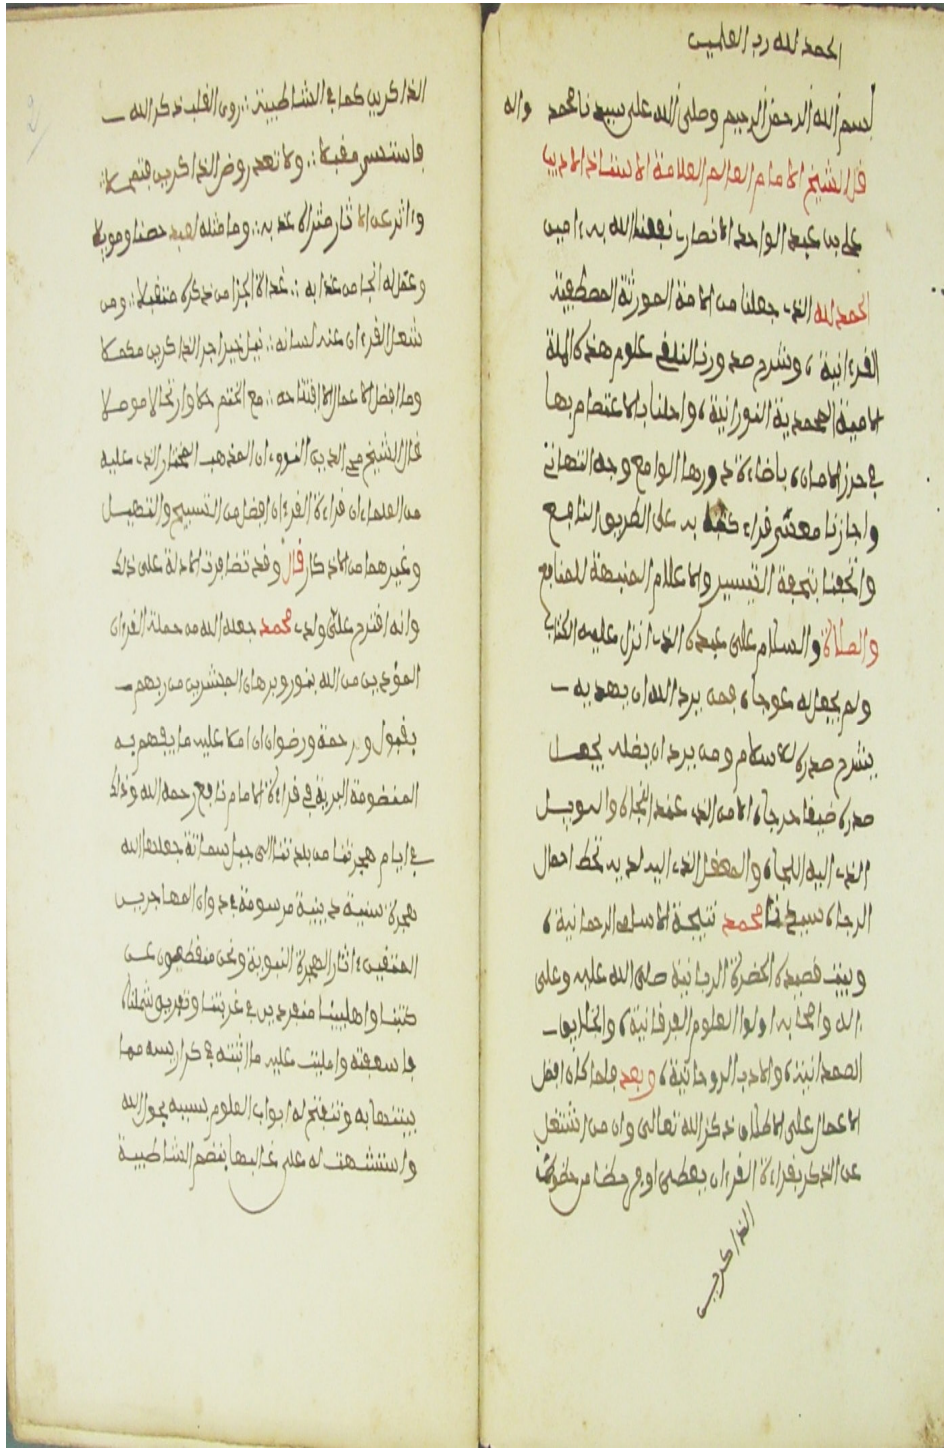 الحمد لله رب العلمين
بسم الله الرحمن الرحيم وصلى الله على سيدنا محمد واله
قال الشيخ الامام العالم العلامة الاستاذ الاديب
على بن عبد الواحد الانصارى نفعنا الله به ءامين
الحمد لله الذى جعلنا من الامة المورثة المصطفية
القرءانية، وشرح صدورنا لتلقى علوم هذه الملة
الامية المحمدية النورانية، واحلنا بالاعتصام بها
فى حرز الامان، باضاءة درورها اللوامع ووجه التهانى
واجازنا معشر قراء كتابه على الطريق النافع
واتحفنا بتحفة التيسير والاعلام المنبهة للمنافع
والصلاة والسلام على عبده الذى انزل عليه الكتاب
ولم يجعل له عوجا، فمن يرد الله ان يهديه
يشرح صدره للاسلام ومن يرد ان يضله يجعل
صدره ضيقا حرجا، الامن الذى عنده النجاة والمويل
الذى اليه اللجا، والمعقل الذى لديه تحط احمال
الرجا، سيدنا محمد نتيجة الاسماء الرحمانية،
وبيت قصيدة الحضرة الربانية صلى الله عليه وعلى
ءاله واصحابه اولوا العلوم الفرقانية، والخلايق
الصمدانية، والاداب الروحانية، وبعد فلما كان افضل
الاعمال على الاطلاق ذكر الله تعالى وان من اشتغل
عن الذكر بقراءة القرءان يعطى اوفر حظا من حظوظ
الذاكرين
الذاكرين كما فى الشاطبية ∴ روى القلب ذكر الله
فاستسق مقبلا ∴ ولا تعد روض الذاكرين فتمحلا ∴
وءاثر عن الاثار مثراة عذبه ∴ وما مثله لعبد حصنا ومويلا
وعمل له انجا من عذابه ∴ غداة الجزا من ذكره متقبلا ∴ ومن
شغل القرءان عنه لسانه ∴ ينل خير اجر الذاكرين مكملا
وما افضل الاعمال الا افتتاحه ∴ مع الختم حلا وارتحالا موصلا
قال الشيخ محى الدين النووى ان المذهب المختار الذى عليه
من العلماء ان قراءة القرءان افضل من التسبيح والتهليل
وغيرهما من الاذكار قال وقد تضافرت الادلة على ذلك
وانه اقترح على ولدى محمد جعله الله من حملة القرءان
المؤيدين من الله بنور وبرهان المبشرين من ربهم
بقبول ورحمة ورضوان ان املا عليه ما يفهم به
المنظومة البرية فى قراءة الامام نافع رحمه الله وذلك
فى ايام هجرتنا من بلدتنا الى جبل سماتة جعلها الله
هجرة سنية دينية مرسومة فى ديوان المهاجرين
المقتفين ءاثار الهجرة النبوية ونحن منقطعون عن
كتبنا واهلينا منفردين فى غربتنا وتفريق شملنا،
فاسعفته وامليت عليه ما اثبته فى كراريسه مما
ينتفع به وتنفتح له ابواب العلوم بسببه بحول الله
واستشهدت له على غالبها بنظم الشاطبية